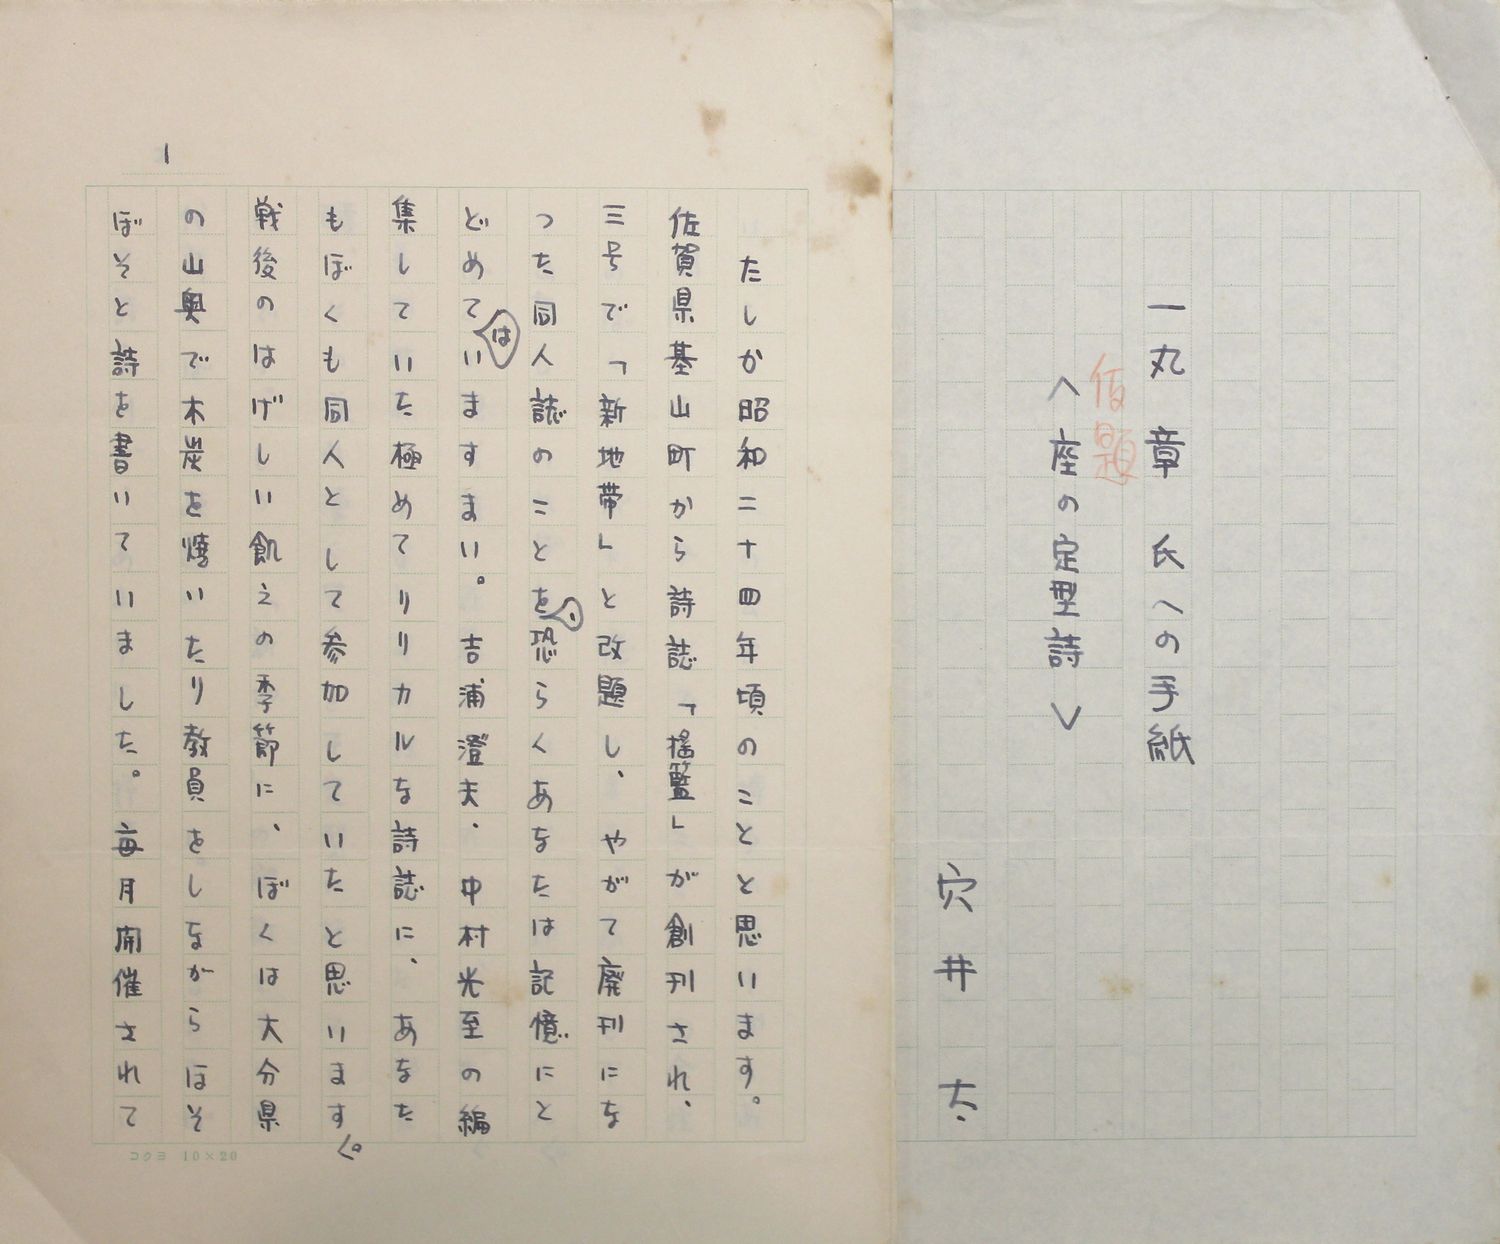 一丸 章 氏への手紙
仮題
〈座の定型詩〉
穴井 太
1
たしか昭和二十四年頃のことと思います。
佐賀県基山町から詩誌「揺籃」が創刊され、
三号で「新地帯」と改題し、やがて廃刊にな
った同人誌のことを、恐らくあなたは記憶にと
どめてはいますまい。吉浦澄夫・中村光至の編
集していた極めてリリカルな詩誌に、あなた
もぼくも同人として参加していたと思います。
戦後のはげしい飢えの季節に、ぼくは大分県
の山奥で木炭を焼いたり教員をしながらほそ
ぼそと詩を書いていました。毎月開催されて
コクヨ 10×20